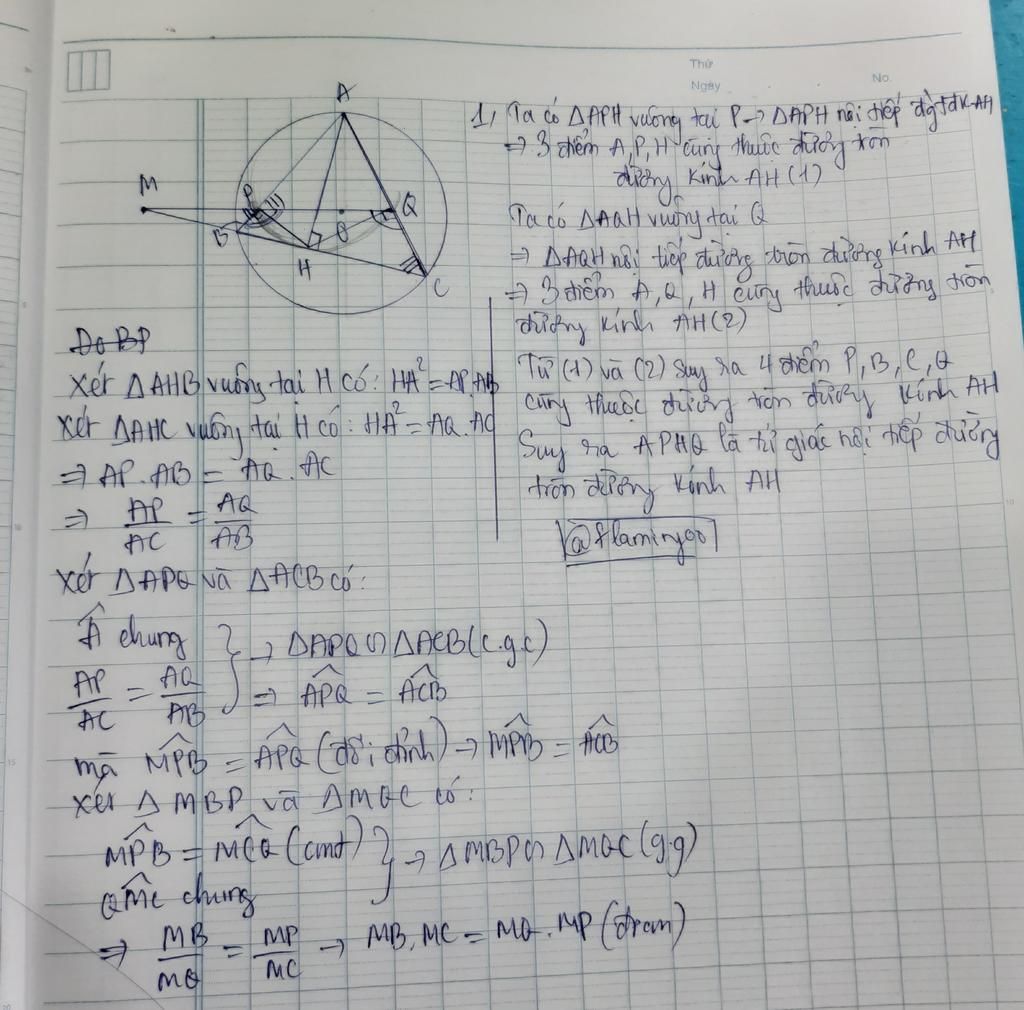 Thứ
Ngày
No.
A
M
P
Q
B
O
H
C
1, Ta có ΔAPH vuông tại P → ΔAPH nội tiếp đgt đk AH
⇒ 3 điểm A, P, H cùng thuộc đường tròn
đường kính AH (1)
Ta có ΔAQH vuông tại Q
⇒ ΔAQH nội tiếp đường tròn đường kính AH
⇒ 3 điểm A, Q, H cùng thuộc đường tròn
đường kính AH (2)
Từ (1) và (2) suy ra 4 điểm P, B, C, Q
cùng thuộc đường tròn đường kính AH
Suy ra APHQ là tứ giác nội tiếp đường
tròn đường kính AH
@flamingo01
Do BP
Xét ΔAHB vuông tại H có: HA² = AP.AB
Xét ΔAHC vuông tại H có: HA² = AQ.AC
⇒ AP.AB = AQ.AC
⇒ AP/AC = AQ/AB
Xét ΔAPQ và ΔACB có:
Â chung
AP/AC = AQ/AB } → ΔAPQ ∽ ΔACB (c.g.c)
⇒ APQ = ACB
mà MPB = APQ (đối đỉnh) → MPB = ACB
Xét ΔMBP và ΔMQC có:
MPB = MCQ (cmt) } → ΔMBP ∽ ΔMQC (g.g)
QMC chung
⇒ MB/MQ = MP/MC → MB.MC = MQ.MP (đpcm)